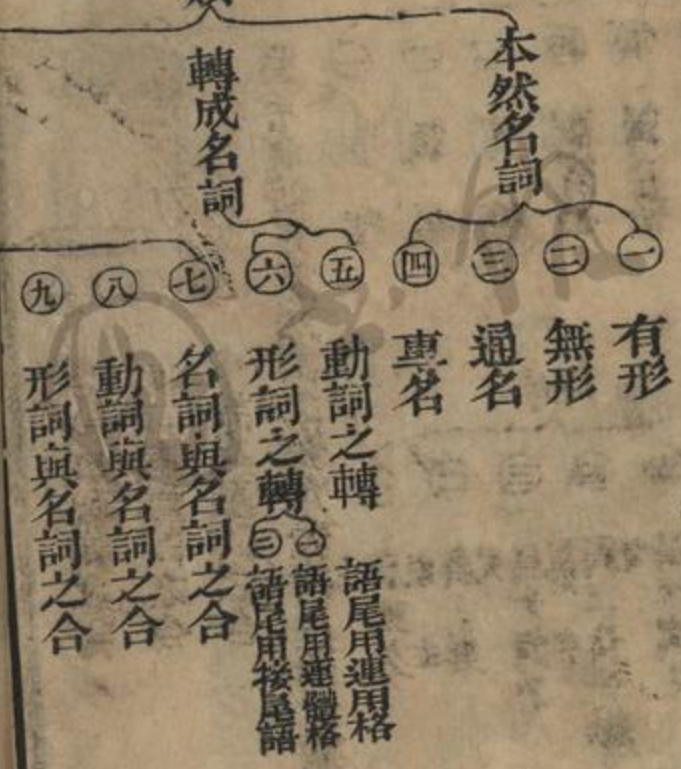 本然名詞
㊀ 有形
㊁ 無形
㊂ 通名
㊃ 專名
轉成名詞
㊄ 動詞之轉 語尾用連用格
㊅ 形詞之轉
語尾用連體格
㊁ 語尾用接尾語
㊆ 名詞與名詞之合
㊇ 動詞與名詞之合
㊈ 形詞與名詞之合